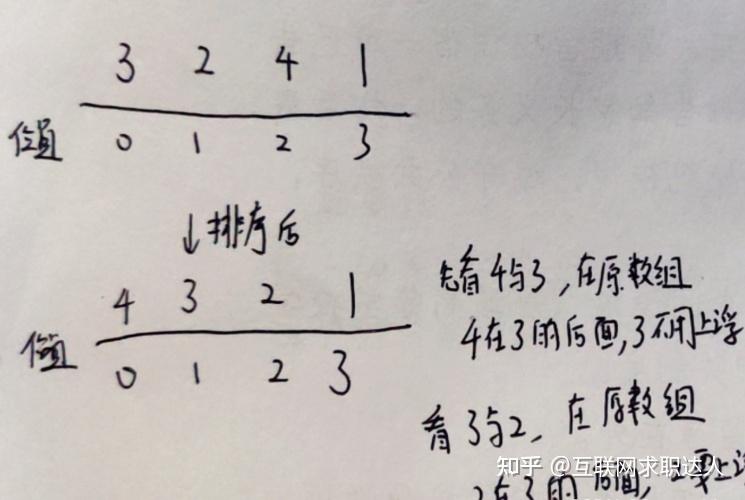 3 2 4 1
位置 0 1 2 3
↓排序后
4 3 2 1
位置 0 1 2 3
先看4与3,在原数组
4在3的后面,3不用上浮
看3与2,在原数组
2在3的后面,2要上浮
知乎 @互联网求职达人